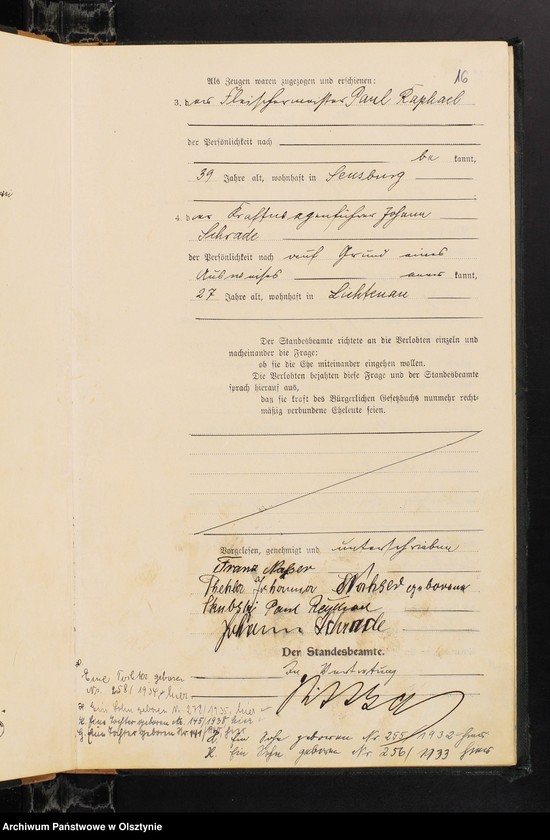 16
Als Zeugen waren zugezogen und erschienen:
3. der Fleischermeister Paul Raphael
der Persönlichkeit nach
be kannt,
39 Jahre alt, wohnhaft in Sensburg
4. der Kraftwagenführer Johann
Schrade
der Persönlichkeit nach auf Grund eines
Ausweises aner kannt,
27 Jahre alt, wohnhaft in Lichtenau
Der Standesbeamte richtete an die Verlobten einzeln und
nacheinander die Frage:
ob sie die Ehe miteinander eingehen wollen.
Die Verlobten bejahten diese Frage und der Standesbeamte
sprach hierauf aus,
daß sie kraft des Bürgerlichen Gesetzbuchs nunmehr recht-
mäßig verbundene Eheleute seien.
Vorgelesen, genehmigt und unterschrieben
Franz
Johanna geborene
Paul
Johann Schrade
Der Standesbeamte.
In Vertretung
Eine Tochter geboren
Nr. 258/1934 hier
Ein Sohn geboren Nr. 279/1935, hier
Eine Tochter geboren Nr. 145/1938 hier
Eine Tochter geboren Nr. 141
Ein Sohn geboren Nr. 255/1932 hier
Ein Sohn geboren Nr. 256/1933 hier
Archiwum Państwowe w Olsztynie